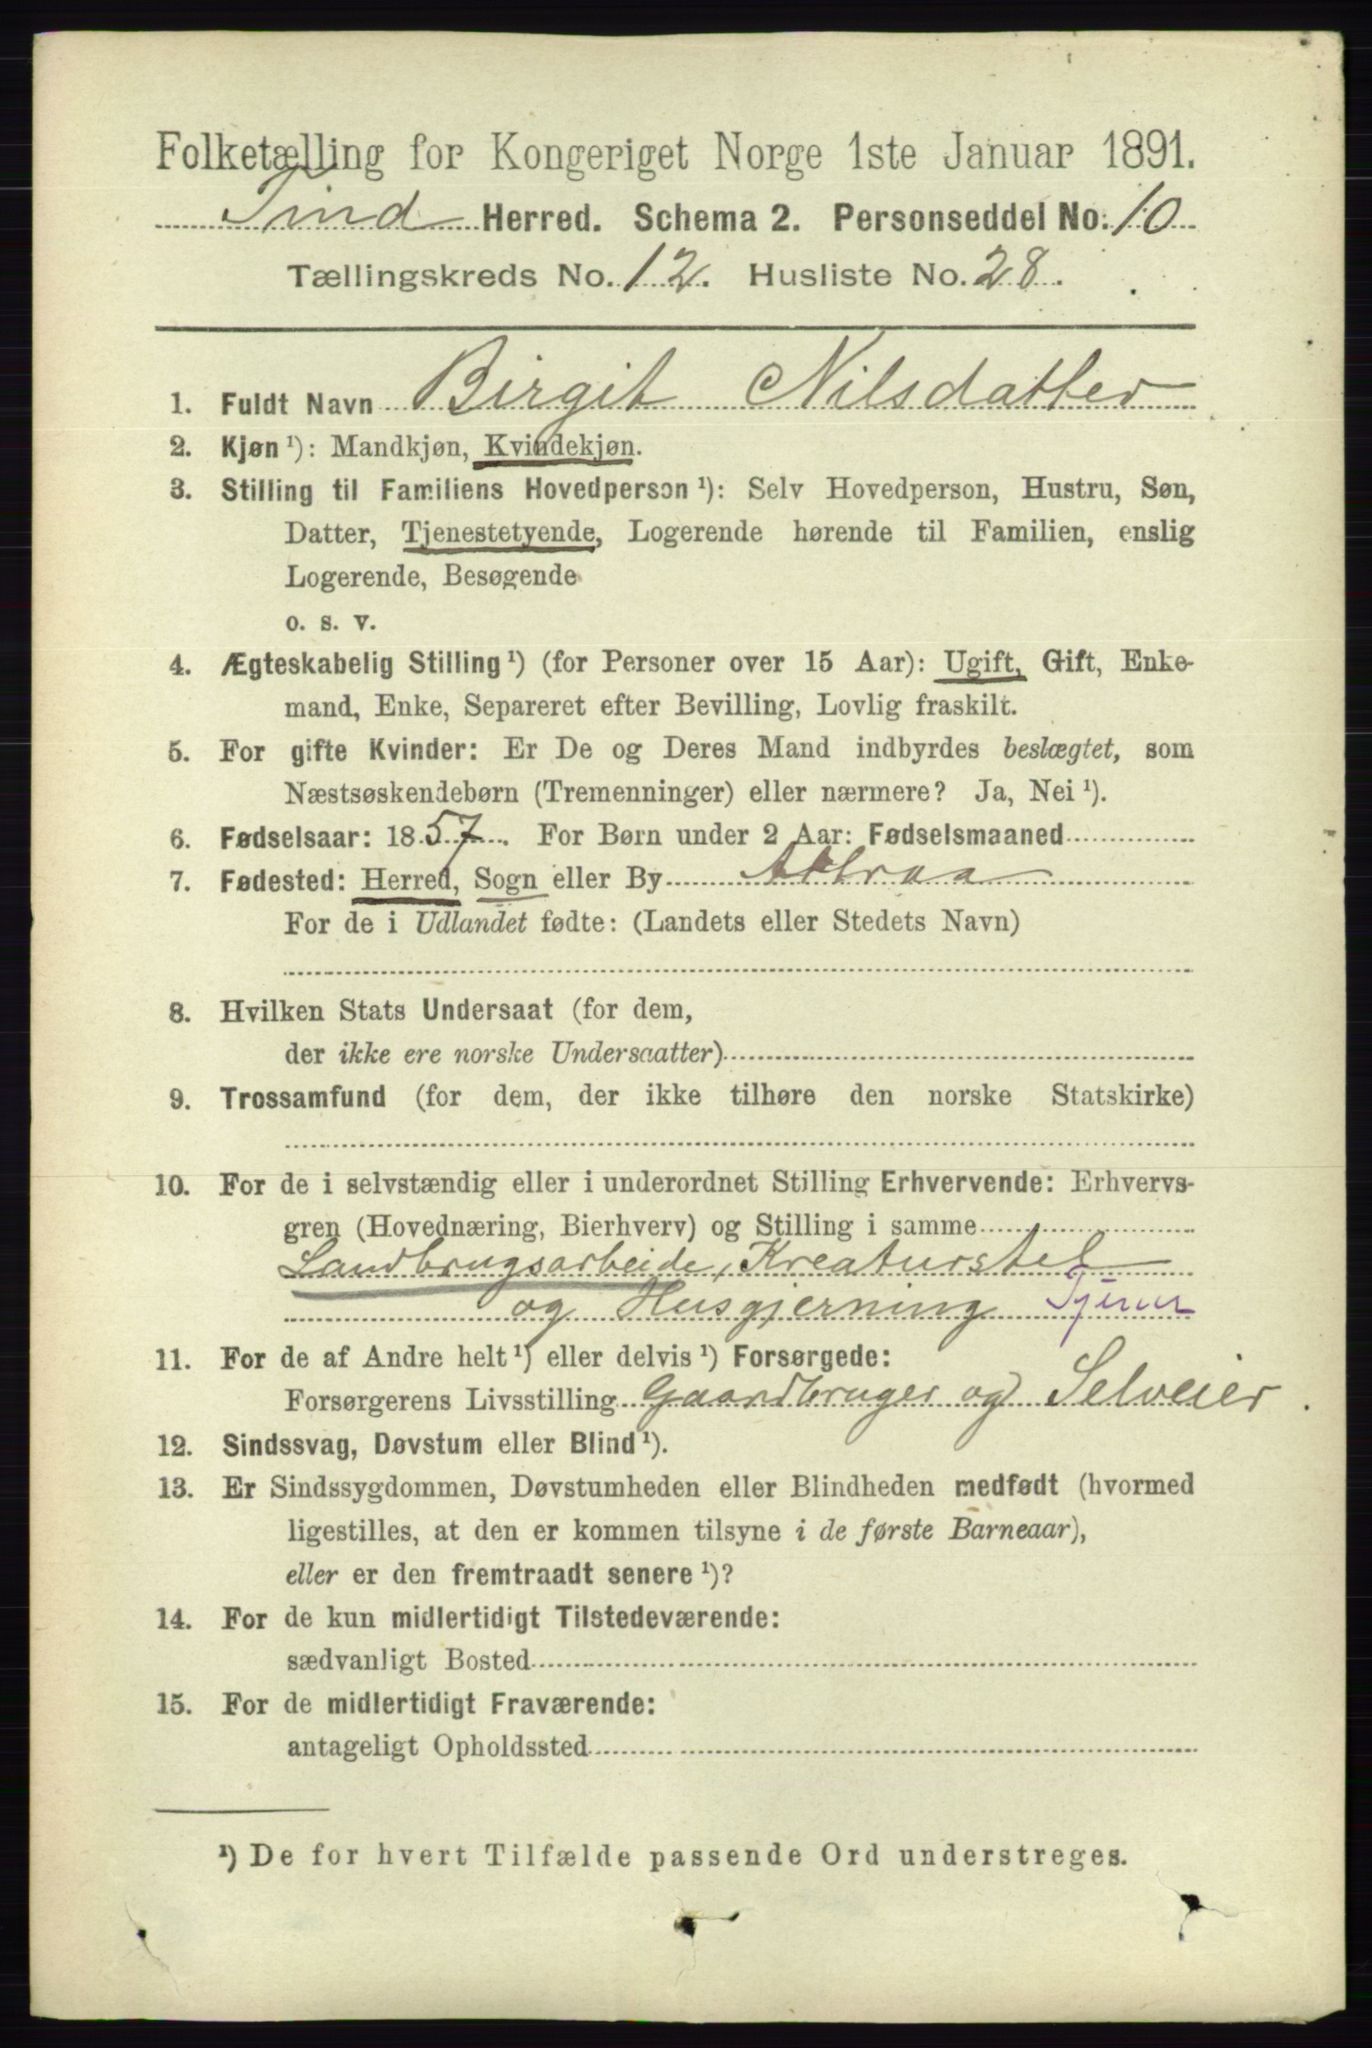 Folketælling for Kongeriget Norge 1ste Januar 1891.
Tind Herred. Schema 2. Personseddel No. 10
Tællingskreds No. 12. Husliste No. 28.
1. Fuldt Navn Birgit Nilsdatter
2. Kjøn ¹): Mandkjøn, Kvindekjøn.
3. Stilling til Familiens Hovedperson ¹): Selv Hovedperson, Hustru, Søn,
Datter, Tjenestetyende, Logerende hørende til Familien, enslig
Logerende, Besøgende
o. s. v.
4. Ægteskabelig Stilling ¹) (for Personer over 15 Aar): Ugift, Gift, Enke-
mand, Enke, Separeret efter Bevilling, Lovlig fraskilt.
5. For gifte Kvinder: Er De og Deres Mand indbyrdes beslægtet, som
Næstsøskendebørn (Tremenninger) eller nærmere? Ja, Nei ¹).
6. Fødselsaar: 1857. For Børn under 2 Aar: Fødselsmaaned
7. Fødested: Herred, Sogn eller By Attraa
For de i Udlandet fødte: (Landets eller Stedets Navn)
8. Hvilken Stats Undersaat (for dem,
der ikke ere norske Undersaatter)
9. Trossamfund (for dem, der ikke tilhøre den norske Statskirke)
10. For de i selvstændig eller i underordnet Stilling Erhvervende: Erhvervs-
gren (Hovednæring, Bierhverv) og Stilling i samme
Landbrugsarbeide, Kreaturstel
og Husgjerning
11. For de af Andre helt ¹) eller delvis ¹) Forsørgede:
Forsørgerens Livsstilling Gaardbruger og Selveier.
12. Sindssvag, Døvstum eller Blind ¹).
13. Er Sindssygdommen, Døvstumheden eller Blindheden medfødt (hvormed
ligestilles, at den er kommen tilsyne i de første Barneaar),
eller er den fremtraadt senere ¹)?
14. For de kun midlertidigt Tilstedeværende:
sædvanligt Bosted
15. For de midlertidigt Fraværende:
antageligt Opholdssted
¹) De for hvert Tilfælde passende Ord understreges.